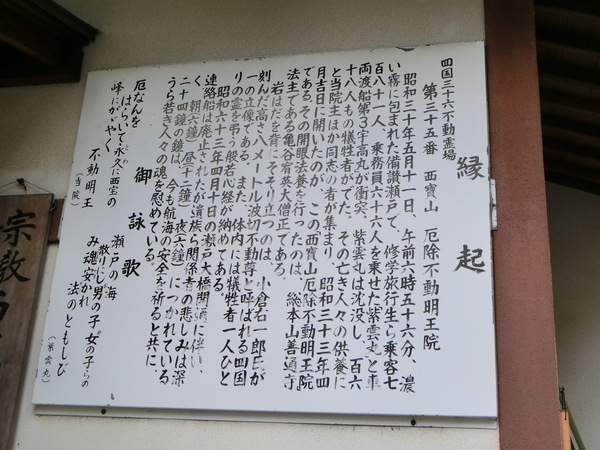 縁起
四国三十六不動霊場
第三十五番 西寳山 厄除不動明王院
昭和三十年五月十一日、午前六時五十六分、濃
い霧に包まれた備讃瀬戸で、修学旅行生ら乗客七
百八十一人、乗務員六十六人を乗せた紫雲丸と車
両渡船第3宇高丸が衝突、紫雲丸は沈没し、百六
十八人もの犠牲者がでた。その亡き人々の供養に
と当院主ほか同志の者が集まり、昭和三十三年四
月吉日に開いたのが、この西寳山厄除不動明王院
である。その開眼法養を行ったのは、総本山善通寺
法主である亀谷宥英大僧正である。
岩はだを背にそそり立つのは、小倉右一郎氏が
刻んだ高さ八メートル波切不動尊と呼ばれる四国
一の立像である。また、体内には犠牲者一人ひと
りの霊を弔う般若心経が納めてある。
昭和六十三年四月十日の瀬戸大橋開通に伴い、
連絡船は廃止されたが遺族ら関係者の悲しみは深
く、朝六鐘)昼(十二鐘)夜六鐘)につかれている
二十四鐘の鐘は、今も航海の安全を祈ると共に、
うら若き人々の魂を慰めている。
御詠歌
厄なんを
はらいて永久に西宝の
とわ
峰にかゞやく
不動明王
(当院)
瀬戸の海
散りにし男の子女の子らの
み魂安かれ
法のともしび
(紫雲丸)
宗教